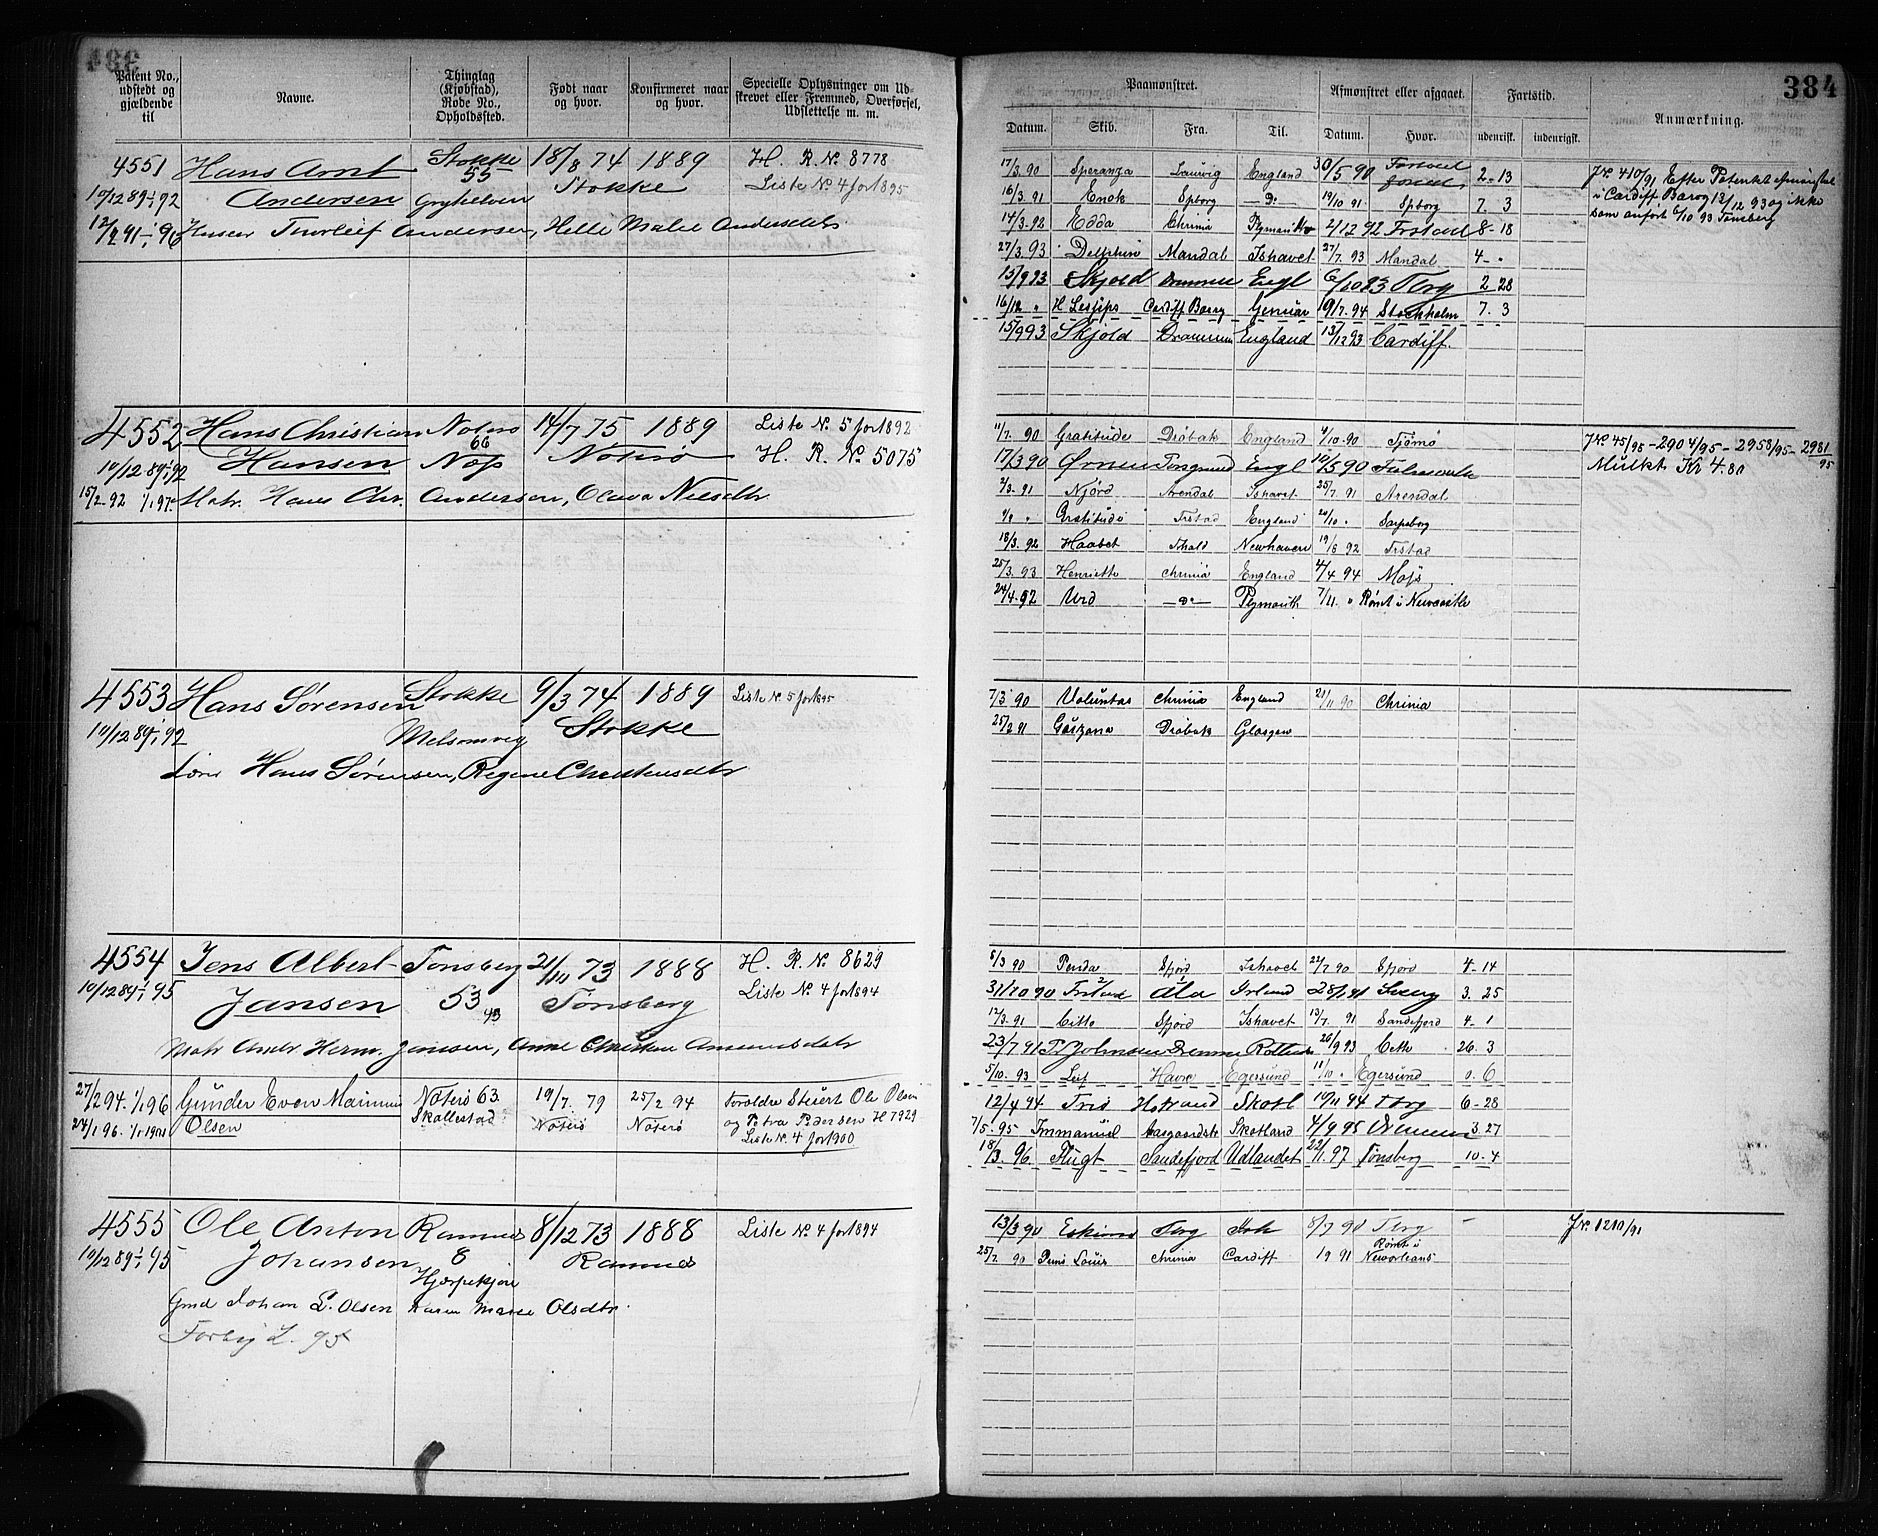 384
Patent No., udstedt og gjældende til
Navne.
Thinglag (Kjøbstad), Rode No., Opholdssted.
Født naar og hvor.
Konfirmeret naar og hvor.
Specielle Oplysninger om Udskrevet eller Fremmed, Overførsel, Udslettelse m. m.
4551 Hans Arnt Stokke 18/8 74 1889 H. R. No 8778
55 Stokke Liste No 4 for 1895
10/12 89 1/1 92 Andersen
Andersen, Helle Malie Andersdtr
4552 Hans Christian Noterø 14/7 75 1889 Liste No 5 for 1892
66
10/12 89 1/1 92 Hansen Noterø H. R. No 5075
15/2 92 1/1 97 Matr. Hans Chr. Andersen, Olava Nielsdtr
4553 Hans Sørensen Stokke 9/3 74 1889 Liste No 5 for 1895
10/12 89 1/1 92 Melsomvig Stokke
Hans Sørensen, Regine Christensdtr
4554 Jens Albert Tønsberg 21/11 73 1888 H. R. No 8629
10/12 89 1/1 95 Jansen 53 Tønsberg Liste No 4 for 1894
43
Matr Andr Herm. Jensen, Anne
27/2 94 1/1 96 Gunder Even Marinius Noterø 63 19/7. 79 25/2 94 Foraldre Stuert Ole Olsen
Skallestad Noterø Noterø og Petra Pedersen H 7929
24/1 96. 1/1 1901 Olsen Liste No 4 for 1900
4555 Ole Anton Ramnes 8/12 73 1888 Liste No 4 for 1894
10/12 89 1/1 95 Johansen 8 Ramnes
Gmd Johan L. Olsen Karen Marie Olsdtr.
Forbig L. 95
384
Paamønstret.
Afmønstret eller afgaaet.
Fartstid.
Anmærkning.
Datum. Skib. Fra. Til. Datum. Hvor. udenrisk. indenrigst.
17/3. 90 Speranza Laurvig England 30/5 90 2-13 JNr 410/91 Efter Patentet
16/3. 91 Enok Spborg —D°— 19/10 91 Spborg 7. 3 i Cardiff Barry 13/12 93 og ikke
14/3. 92 Edda Chrinia 2/12 92 Frstad 8-18 som anført 6/10 93 Tønsberg
27/3. 93 Delphin Mandal Ishavet 27/7. 93 Mandal 4- "
15/9 93 Skjold Drammen Engl 6/10 93 Tbrg 2 28
16/12 " Cardiff Barry 9/7. 94 Stockholm 7. 3
15/9 93 Skjold Drammen England 13/12 93 Cardiff.
11/7. 90 Gratitude Drøbak England 9/10-90 Tjømø JNr 45/95-2904/95-2958/95-2981/95
17/3 90 Engl 10/5 90 Mulkt Kr 4.80
2/3. 91 Njørd Arendal Ishavet 25/7. 91 Arendal
9/9 " Gratitude Frstad England 20/10 " Sarpsborg
18/3. 92 Haabet Fhald Newhaven 19/8 92 Frstad
25/3. 93 Henriette Chrinia England 4/4 94 Moss
24/4. 92 Urd —D°— Plymouth 7/11. " Rømt i Newcastle
7/3 90 Voluntas Chrinia England 21/11 90 Chrinia
25/2 91 Drøbak Glasgow
5/3 90 Sfjord Ishavet 22/7 90 Sfjord 4-14
31/10 90 Frstad 3. 25
12/3. 91 Citto Sfjord Ishavet 13/7. 91 Sandefjord 4- 1
23/7 91 20/9 93 Cette 26. 3
5/10. 93 Leif Havre Egersund 11/10 " Egersund 0. 6
12/4 94 Fris Holland Skotl 10/11 94 Tbrg 6-28
7/5. 95 Immanuel Aasgaardstr Skotland 4/9 95 3. 27
18/3. 96. Flugt Sandefjord Udlandet 22/1. 97 Tønsberg 10. 4
13/3 90 Eskimo Tbrg Ish 8/7 90 Tbrg JNr. 1210/91
25/7 90 Prins Louis Chrinia Cardiff 19 91 Rømt i Neworleans